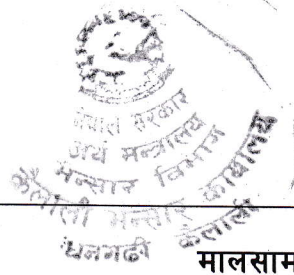 नेपाल सरकार
अर्थ मन्त्रालय
भन्सार विभाग
कैलाली भन्सार कार्यालय
धनगढी कैलाली
मालसाम